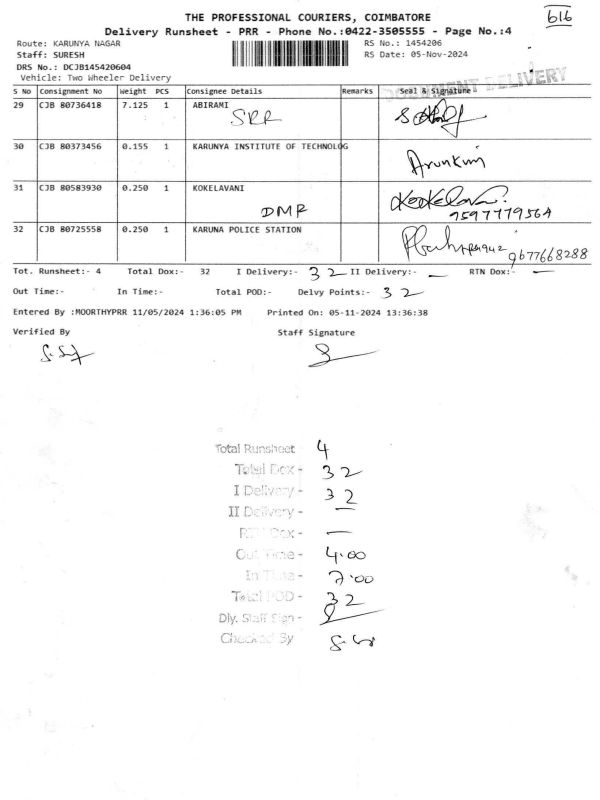 THE PROFESSIONAL COURIERS, COIMBATORE
616
Delivery Runsheet - PRR - Phone No.:0422-3505555 - Page No.:4
Route: KARUNYA NAGAR RS No.: 1454206
Staff: SURESH RS Date: 05-Nov-2024
DRS No.: DCJB145420604
Vehicle: Two Wheeler Delivery
DOCUMENT DELIVERY
S No Consignment No Weight PCS Consignee Details Remarks Seal & Signature
29 CJB 80736418 7.125 1 ABIRAMI
SRR
30 CJB 80373456 0.155 1 KARUNYA INSTITUTE OF TECHNOLOG
Arunkumar
31 CJB 80583930 0.250 1 KOKELAVANI
DMR Kokelavani
9597779564
32 CJB 80725558 0.250 1 KARUNA POLICE STATION
9677668288
Tot. Runsheet:- 4 Total Dox:- 32 I Delivery:- 32 II Delivery:- — RTN Dox:- —
Out Time:- In Time:- Total POD:- Delvy Points:- 32
Entered By :MOORTHYPRR 11/05/2024 1:36:05 PM Printed On: 05-11-2024 13:36:38
Verified By Staff Signature
Total Runsheet 4
Total Dox - 32
I Delivery - 32
II Delivery - —
RTN Dox - —
Out Time - 4.00
In Time - 7.00
Total POD - 32
Dly. Staff Sign -
Checked By